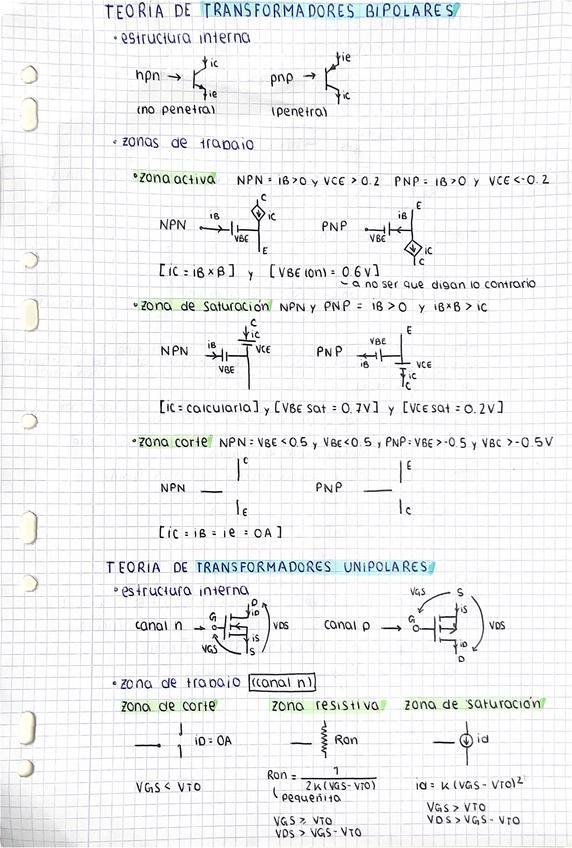 TEORIA DE TRANSFORMADORES BIPOLARES
• estructura interna
npn → ic ie pnp → ie ic
(no penetra) (penetra)
• zonas de trabajo
• zona activa NPN = iB>0 y VCE > 0.2 PNP = iB>0 y VCE <-0.2
NPN iB VBE C iC E PNP VBE iB E iC C
[iC = iB × B] y [VBE (on) = 0.6V]
a no ser que digan lo contrario
• zona de saturación NPN y PNP = iB >0 y iB×B > iC
NPN iB VBE C iC VCE PNP VBE iB E VCE iC C
[iC = calcularla] y [VBE sat = 0.7V] y [VCE sat = 0.2V]
• zona corte NPN = VBE <0.5 y VBE<0.5 y PNP=VBE >-0.5 y VBC >-0.5V
NPN C E PNP E C
[iC = iB = ie = 0A]
TEORIA DE TRANSFORMADORES UNIPOLARES
• estructura interna
canal n → G D iD iS S VGS VDS canal p → G VGS S iS iD D VDS
• zona de trabajo (canal n)
zona de corte zona resistiva zona de saturación
iD = 0A Ron id
VGS < VTO Ron = 1 / 2K(VGS-VTO) id = K(VGS-VTO)²
pequeñita
VGS ≥ VTO VGS > VTO
VDS > VGS-VTO VDS > VGS-VTO